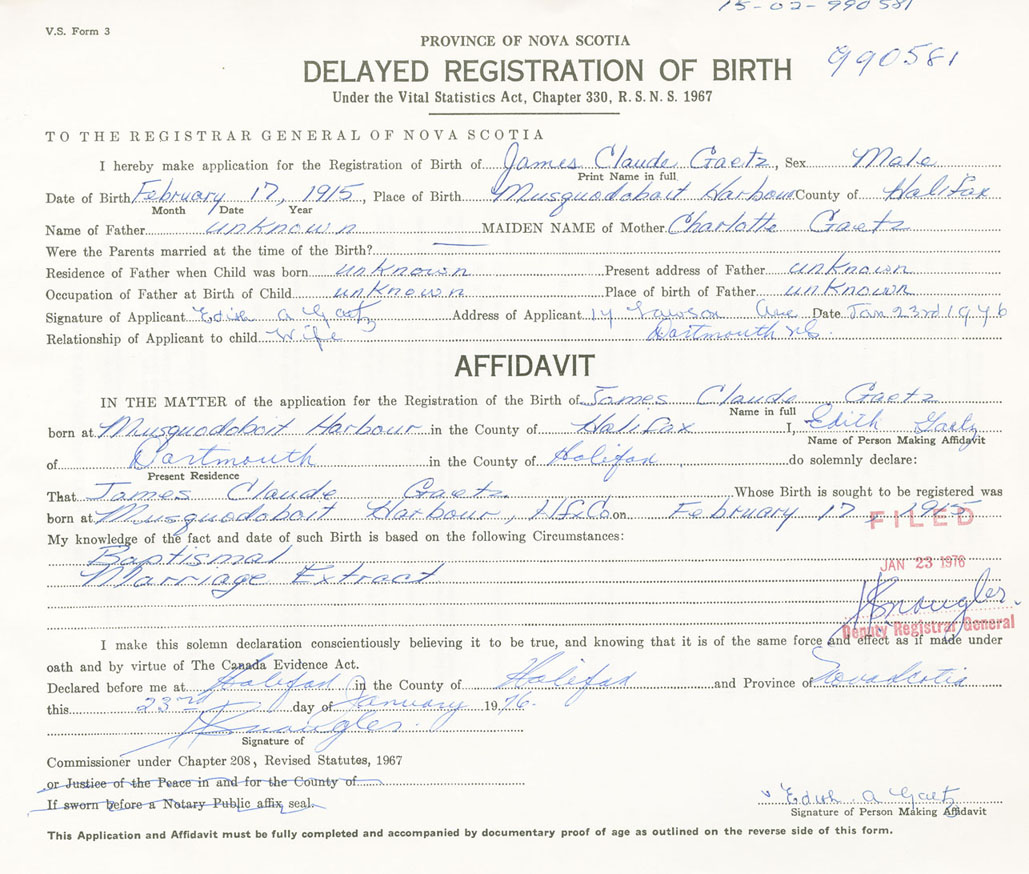 15-02-990581
V.S. Form 3
990581
PROVINCE OF NOVA SCOTIA
DELAYED REGISTRATION OF BIRTH
Under the Vital Statistics Act, Chapter 330, R. S. N. S. 1967
TO THE REGISTRAR GENERAL OF NOVA SCOTIA
I hereby make application for the Registration of Birth of James Claude Gaetz, Sex Male
Print Name in full
Date of Birth February 17, 1915, Place of Birth Musquodoboit Harbour County of Halifax
Month Date Year
Name of Father unknown MAIDEN NAME of Mother Charlotte Gaetz
Were the Parents married at the time of the Birth? —
Residence of Father when Child was born unknown Present address of Father unknown
Occupation of Father at Birth of Child unknown Place of birth of Father unknown
Signature of Applicant Edith A Gaetz Address of Applicant 14 Lawson Ave Date Jan 23rd 1976
Relationship of Applicant to child Wife Dartmouth NS.
AFFIDAVIT
IN THE MATTER of the application for the Registration of the Birth of James Claude Gaetz
Name in full
born at Musquodoboit Harbour in the County of Halifax I, Edith Gaetz
Name of Person Making Affidavit
of Dartmouth in the County of Halifax do solemnly declare:
Present Residence
That James Claude Gaetz Whose Birth is sought to be registered was
born at Musquodoboit Harbour, Hfx Co on February 17, 1915
FILED
My knowledge of the fact and date of such Birth is based on the following Circumstances:
Baptismal
JAN 23 1976
Marriage Extract
Deputy Registrar General
I make this solemn declaration conscientiously believing it to be true, and knowing that it is of the same force and effect as if made under
oath and by virtue of The Canada Evidence Act.
Declared before me at Halifax in the County of Halifax and Province of Nova Scotia
this 23rd day of January 1976.
Signature of
Commissioner under Chapter 208, Revised Statutes, 1967
or Justice of the Peace in and for the County of
If sworn before a Notary Public affix seal.
Edith A Gaetz
Signature of Person Making Affidavit
This Application and Affidavit must be fully completed and accompanied by documentary proof of age as outlined on the reverse side of this form.